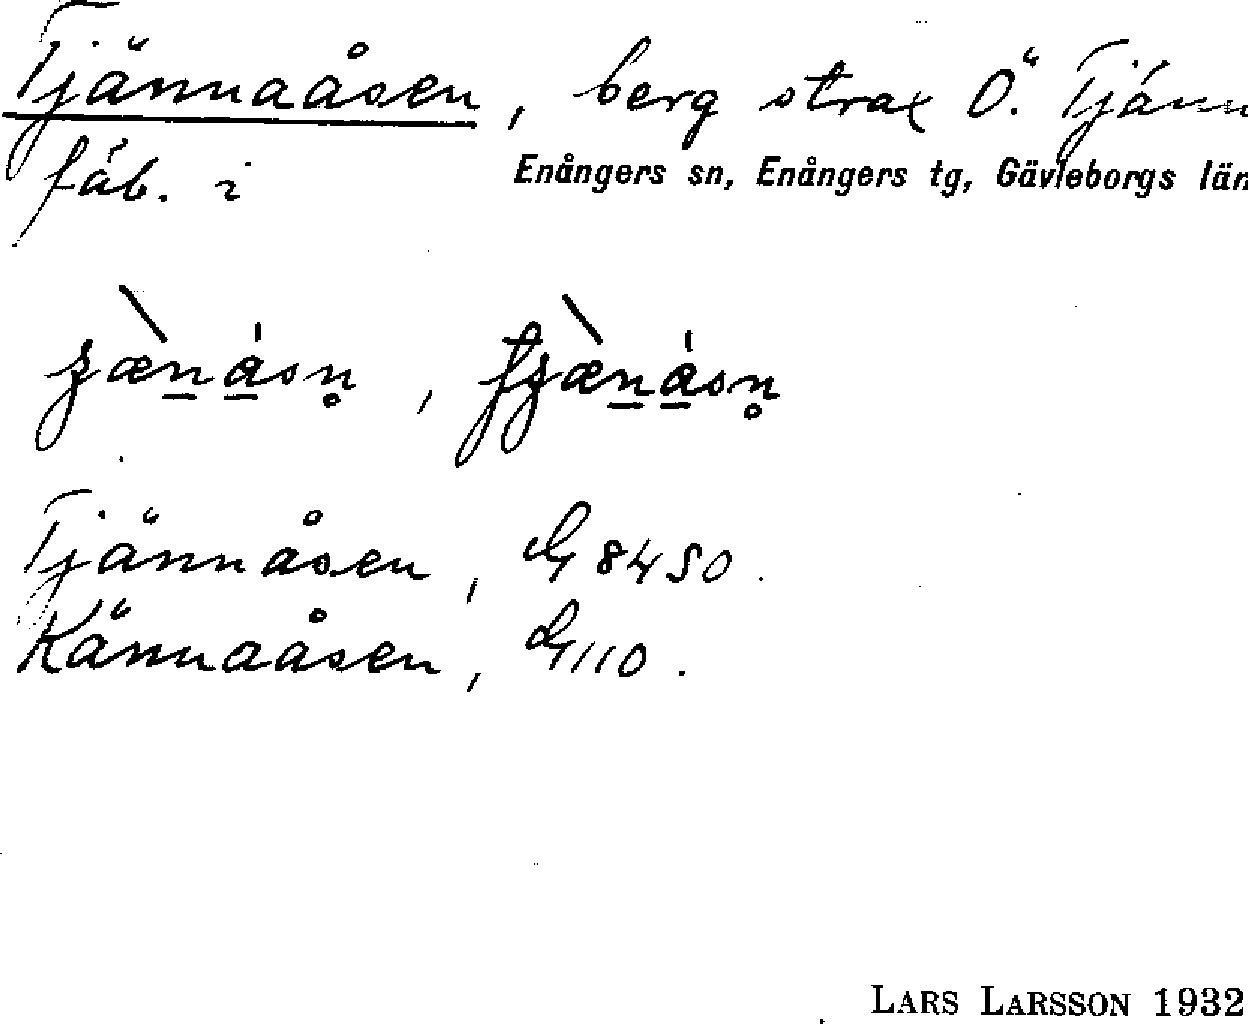 Tjännaåsen, berg strax Ö. Tjänn
fäb. i Enångers sn, Enångers tg, Gävleborgs län
Tjännåsen, G 8450.
Kännaåsen, G 110.
LARS LARSSON 1932